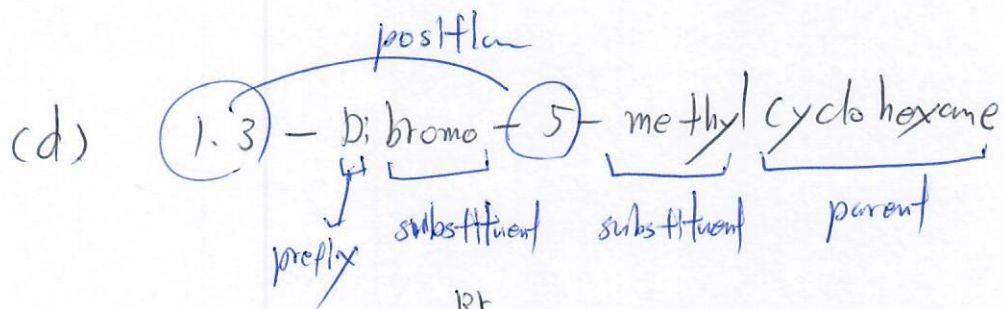 position
(d) 1.3 - Dibromo - 5 - methyl cyclohexane
prefix substituent substituent parent
Br